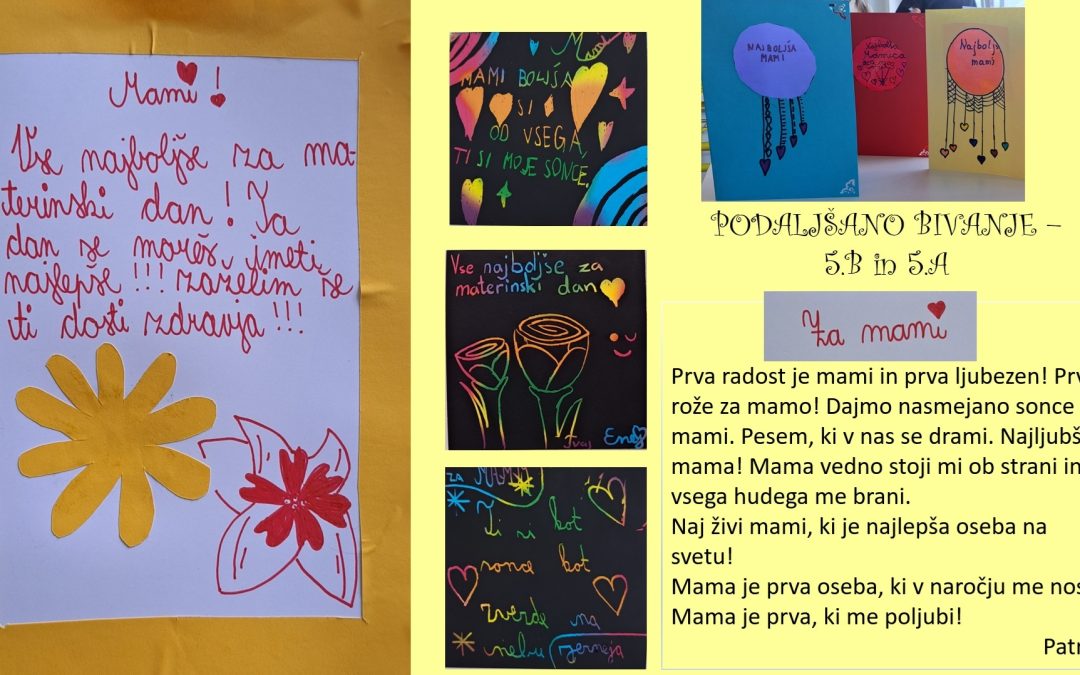 Mami!
Vse najboljše za ma-
terinski dan! Ta
dan se moreš imeti
najlepše!!! zaželim še
ti dosti zdravja!!!
Mami
MAMI BOLJŠA
SI
OD VSEGA,
TI SI MOJE SONCE.
Vse najboljše za
materinski dan
Enej
ZA MAMI
Ti si kot
sonce kot
zvezde na
nebu Jerneja
NAJBOLJŠA
MAMI
Najboljša
mami
PODALJŠANO BIVANJE –
5.B in 5.A
Za mami
Prva radost je mami in prva ljubezen! Prv
rože za mamo! Dajmo nasmejano sonce
mami. Pesem, ki v nas se drami. Najljubš
mama! Mama vedno stoji mi ob strani in
vsega hudega me brani.
Naj živi mami, ki je najlepša oseba na
svetu!
Mama je prva oseba, ki v naročju me nos
Mama je prva, ki me poljubi!
Patr